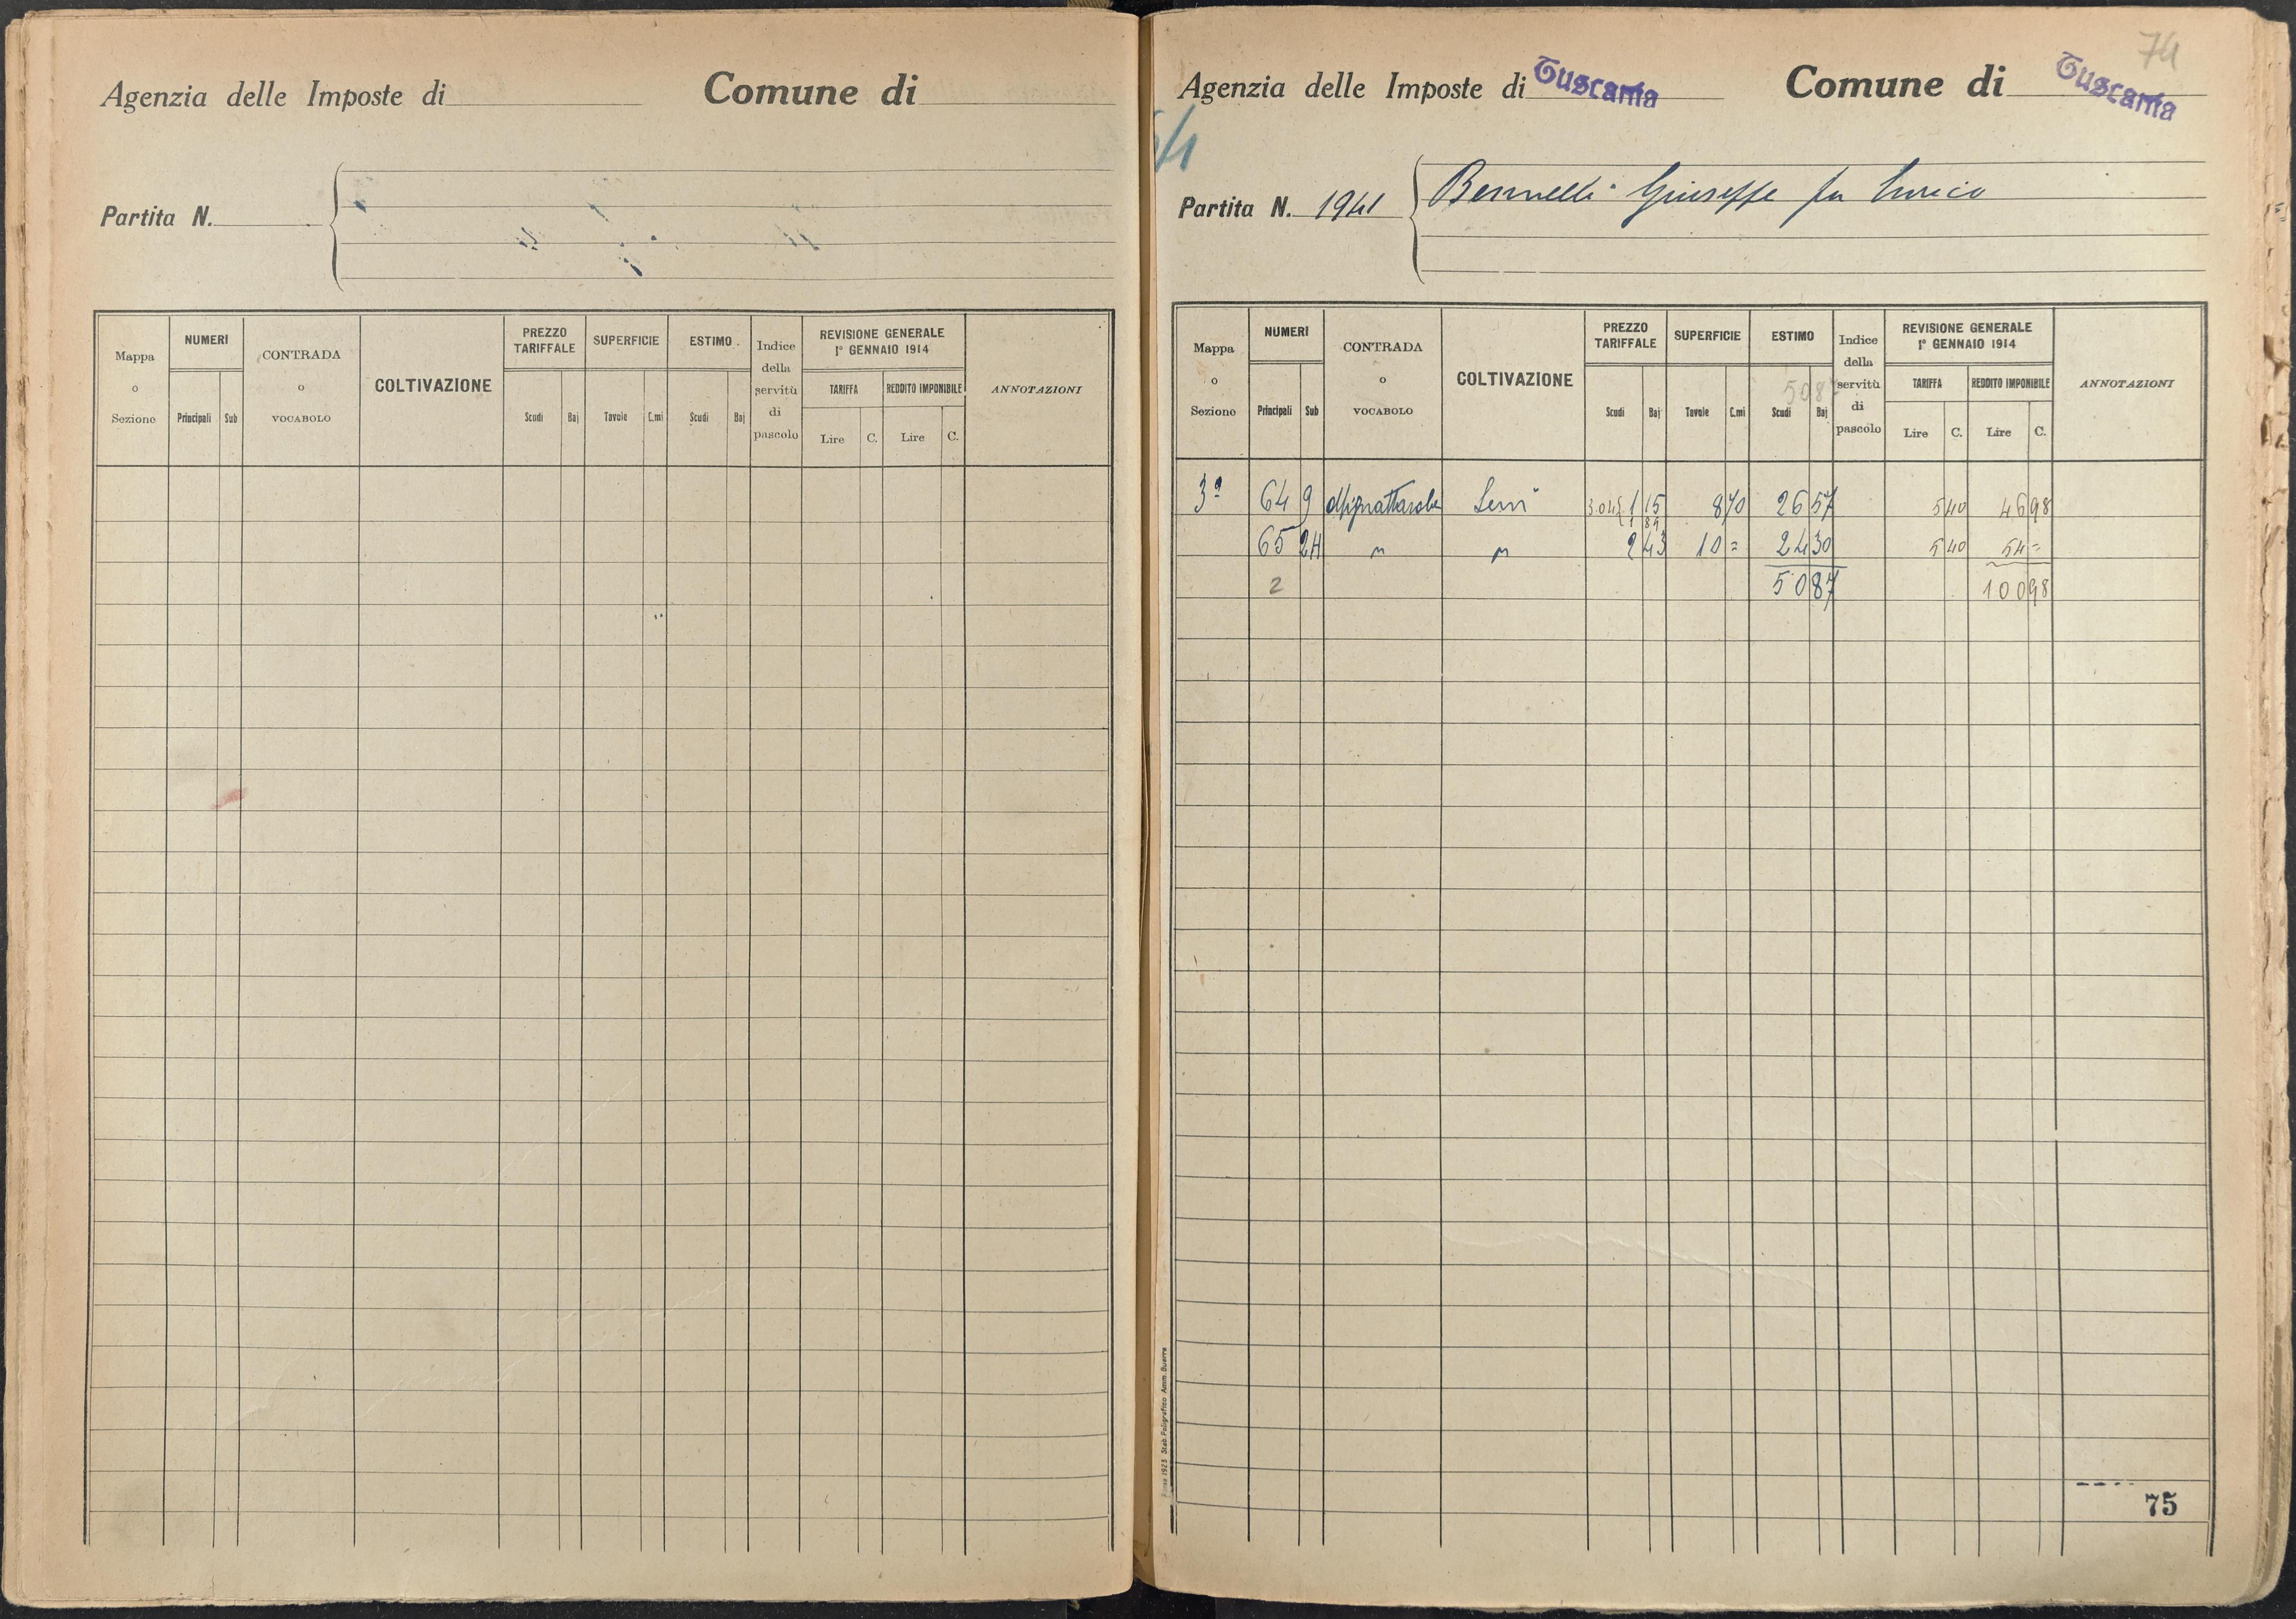 Agenzia delle Imposte di
Comune di
Partita N.
Mappa o Sezione
NUMERI
Principali
Sub
CONTRADA o VOCABOLO
COLTIVAZIONE
PREZZO TARIFFALE
Scudi
Baj
SUPERFICIE
Tavole
C.mi
ESTIMO
Scudi
Baj
Indice della servitù di pascolo
REVISIONE GENERALE
1° GENNAIO 1914
TARIFFA
REDDITO IMPONIBILE
Lire
C.
Lire
C.
ANNOTAZIONI
74
Agenzia delle Imposte di Tuscania
Comune di Tuscania
Partita N. 1941
Giuseppe fu Enrico
Mappa o Sezione
NUMERI
Principali
Sub
CONTRADA o VOCABOLO
COLTIVAZIONE
PREZZO TARIFFALE
Scudi
Baj
SUPERFICIE
Tavole
C.mi
ESTIMO
5087
Scudi
Baj
Indice della servitù di pascolo
REVISIONE GENERALE
1° GENNAIO 1914
TARIFFA
REDDITO IMPONIBILE
Lire
C.
Lire
C.
ANNOTAZIONI
3ª 64 9 Sem 3.04 { 1 15 8 70 26 57 5 40 46 98
1 89
65 24 " " 2 43 10 = 24 30 5 40 54 =
2 50 87 100 98
1923 Stab. Poligrafico Amm. Guerra
75